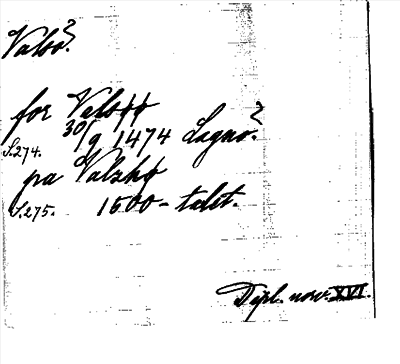 Valsø?
for Valsøø
30/9 1474 Lagnø?
S.274.
pa Valzhø
S.275. 1500-talet.
Dipl. norv. XVI.